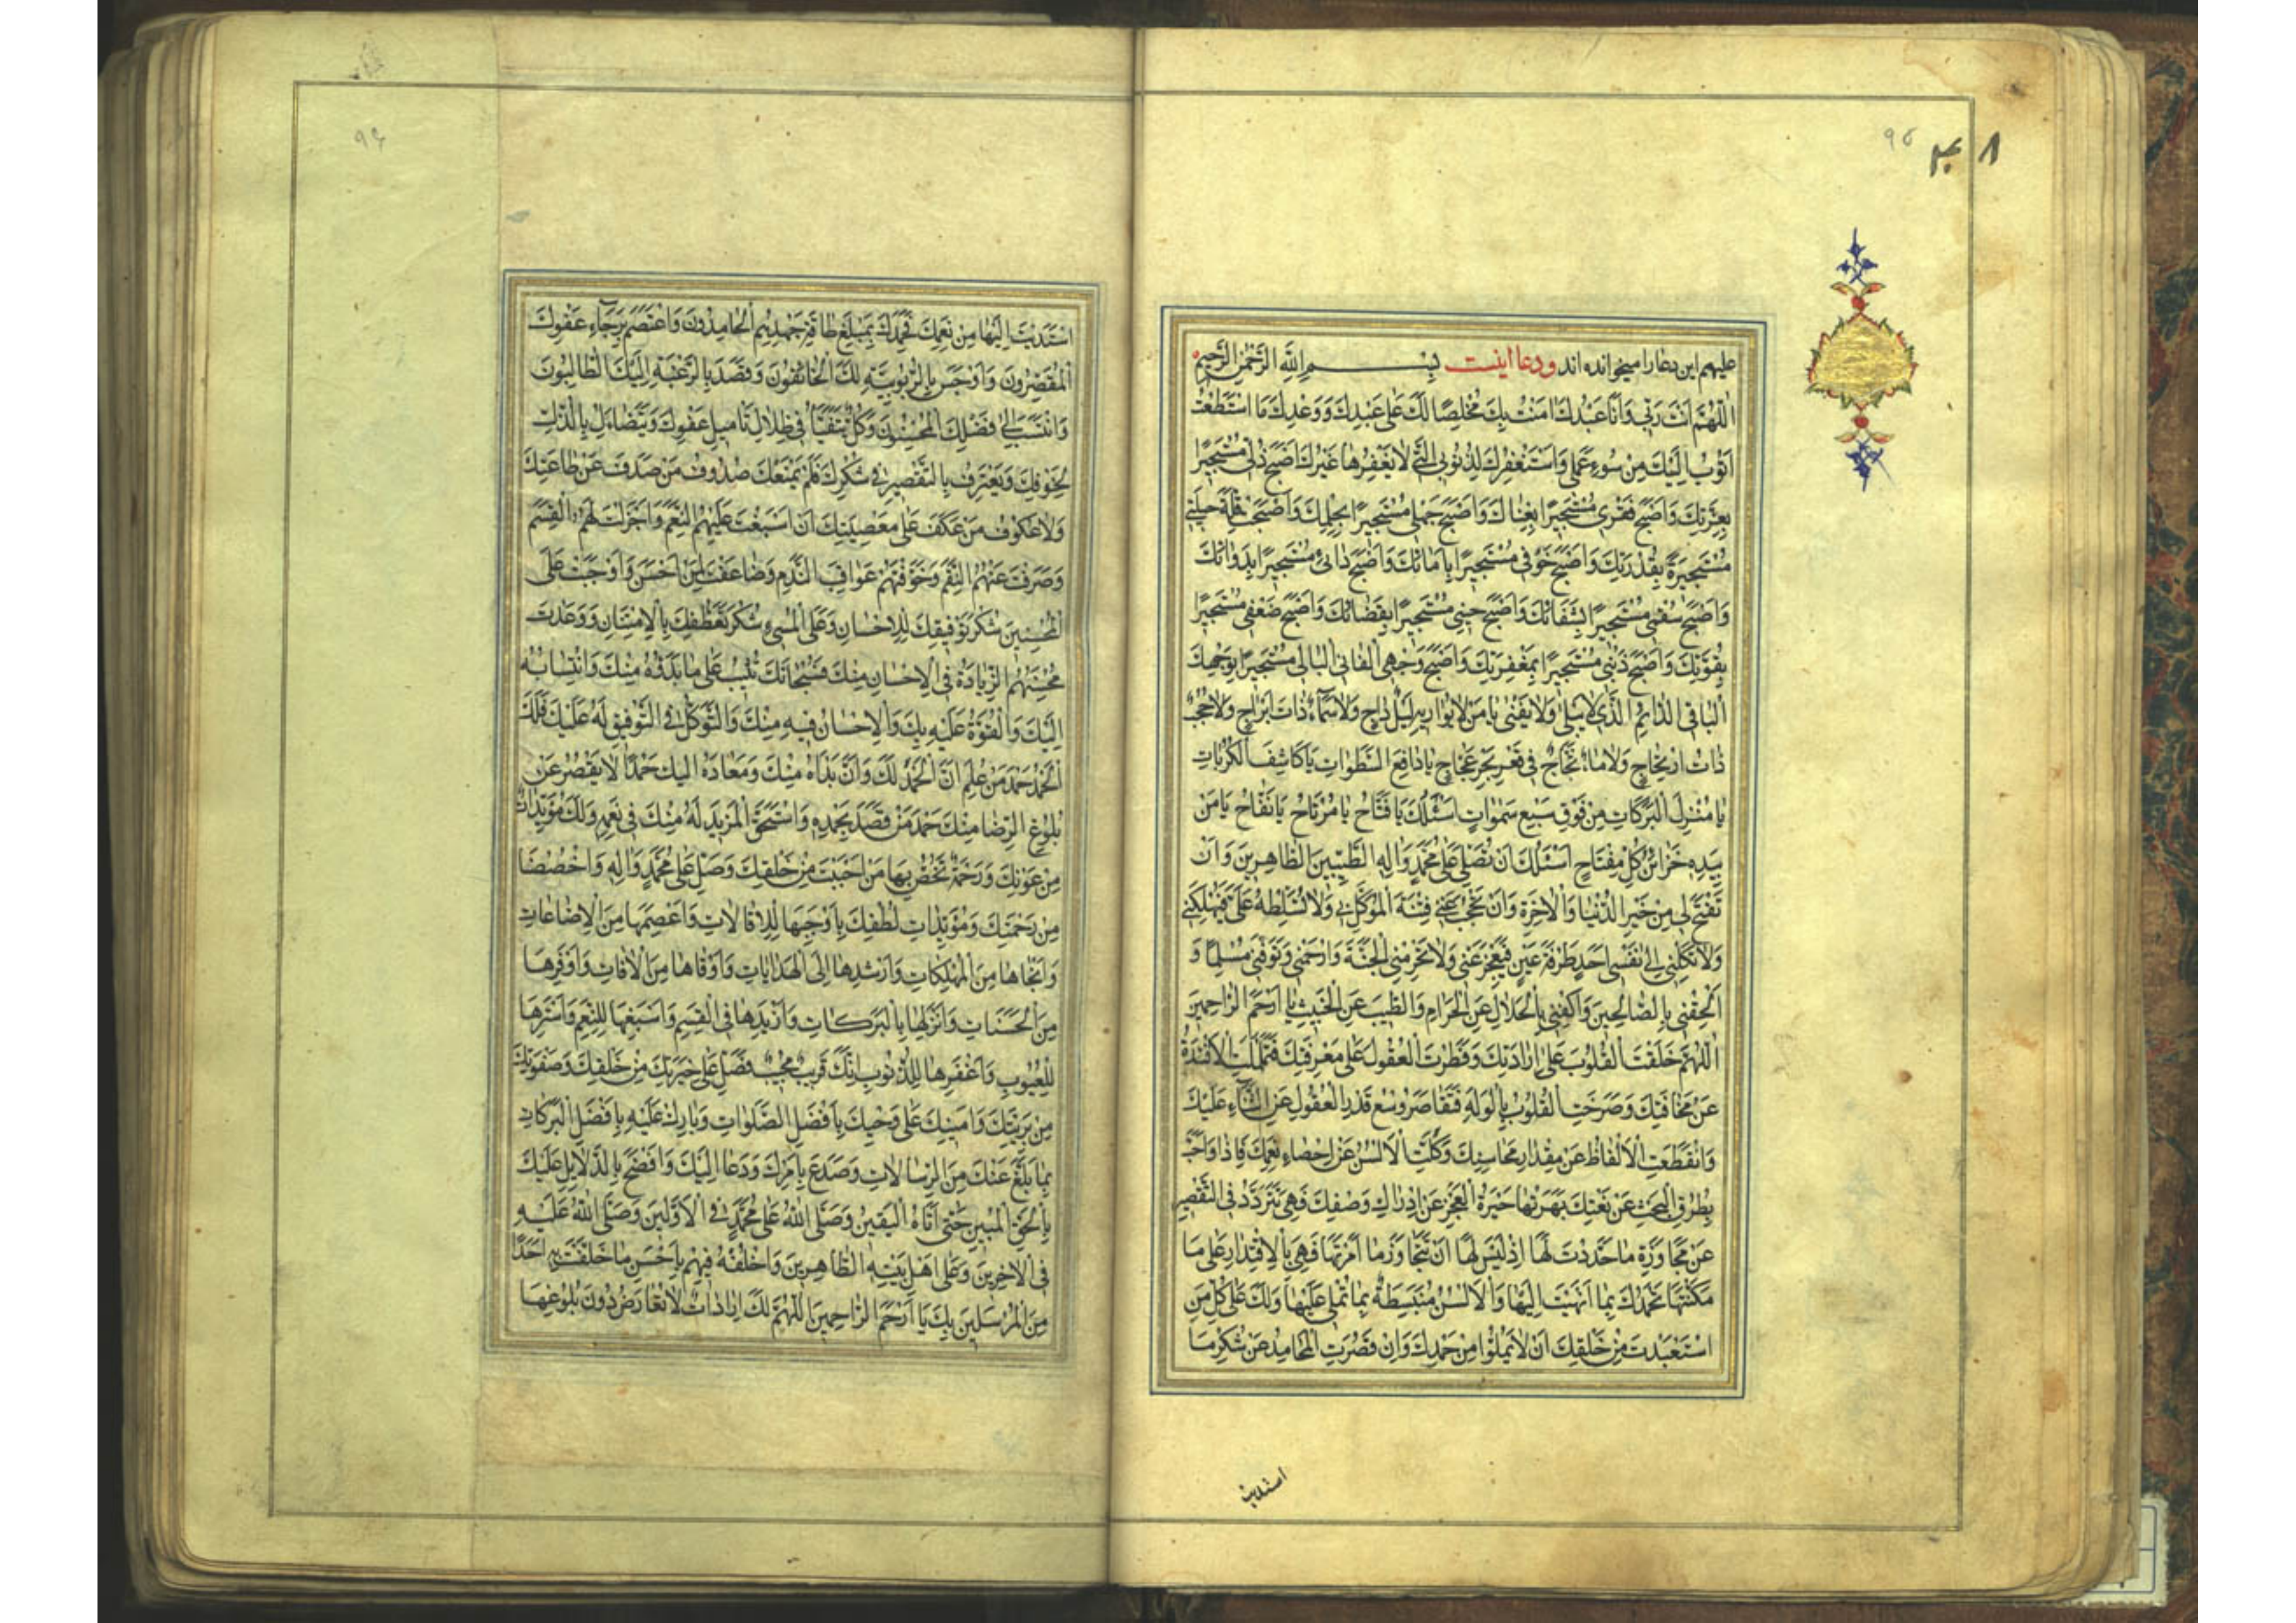 ۹۵
۴۸
علیهم این دعا را میخوانده اند و دعا اینست بِسْمِ اللّهِ الرَّحْمٰنِ الرَّحیمِ
اَللّهُمَّ اَنْتَ رَبّی وَاَنَا عَبْدُكَ امَنْتُ بِكَ مُخْلِصًا لَكَ عَلی عَهْدِكَ وَوَعْدِكَ مَا اسْتَطَعْتُ
اَتُوبُ اِلَیْكَ مِنْ سُوءِ عَمَلی وَاَسْتَغْفِرُكَ لِذُنُوبِی الَّتی لا یَغْفِرُها غَیْرُكَ اَصْبَحَ ذُلّی مُسْتَجیرًا
بِعِزَّتِكَ وَاَصْبَحَ فَقْری مُسْتَجیرًا بِغِناكَ وَاَصْبَحَ جَهْلی مُسْتَجیرًا بِحِلْمِكَ وَاَصْبَحَتْ قِلَّةُ حیلَتی
مُسْتَجیرَةً بِقُدْرَتِكَ وَاَصْبَحَ خَوْفی مُسْتَجیرًا بِاَمانِكَ وَاَصْبَحَ دائی مُسْتَجیرًا بِدَوائِكَ
وَاَصْبَحَ سُقْمی مُسْتَجیرًا بِشَفائِكَ وَاَصْبَحَ حینی مُسْتَجیرًا بِقَضائِكَ وَاَصْبَحَ ضَعْفی مُسْتَجیرًا
بِقُوَّتِكَ وَاَصْبَحَ ذَنْبی مُسْتَجیرًا بِمَغْفِرَتِكَ وَاَصْبَحَ وَجْهِی الْفانِی الْبالی مُسْتَجیرًا بِوَجْهِكَ
الْباقِی الدّائِمِ الَّذی لا یَبْلی وَلا یَفْنی یا مَنْ لا یُواریهِ لَیْلٌ داجٍ وَلا سَماءٌ ذاتُ اَبْراجٍ وَلا حُجُبٌ
ذاتُ ارْتِجاجٍ وَلا ماءٌ ثَجّاجٌ فی قَعْرِ بَحْرٍ عَجّاجٍ یا دافِعَ السَّطَواتِ یا كاشِفَ الْكُرُباتِ
یا مُنْزِلَ الْبَرَكاتِ مِنْ فَوْقِ سَبْعِ سَمٰواتٍ اَسْئَلُكَ یا فَتّاحُ یا مُرْتاحُ یا نَفّاحُ یا مَنْ
بِیَدِهِ خَزائِنُ كُلِّ مِفْتاحٍ اَسْئَلُكَ اَنْ تُصَلِّیَ عَلی مُحَمَّدٍ وَالِهِ الطَّیِّبینَ الطّاهِرینَ وَاَنْ
تَفْتَحَ لی مِنْ خَیْرِ الدُّنْیا وَالْاخِرَةِ وَاَنْ تَحْجُبَ عَنّی فِتْنَةَ الْمُوَكَّلِ بی وَلا تُسَلِّطْهُ عَلَیَّ فَیُهْلِكَنی
وَلا تَكِلْنی اِلی نَفْسی اَحَدٍ طَرْفَةَ عَیْنٍ فَیَعْجِزَ عَنّی وَلا تَحْرِمْنِی الْجَنَّةَ وَارْحَمْنی وَتَوَفَّنی مُسْلِمًا وَ
اَلْحِقْنی بِالصّالِحینَ وَاكْفِنی بِالْحَلالِ عَنِ الْحَرامِ وَالطَّیِّبِ عَنِ الْخَبیثِ یا اَرْحَمَ الرّاحِمینَ
اَللّهُمَّ خَلَقْتَ الْقُلُوبَ عَلی اِرادَتِكَ وَفَطَرْتَ الْعُقُولَ عَلی مَعْرِفَتِكَ فَتَمَلْمَلَتِ الْاَفْئِدَةُ
عَنْ مَخافَتِكَ وَصَرَخَتِ الْقُلُوبُ بِالْوَلَهِ فَتَقاصَرَ وُسْعُ قَدْرِ الْعُقُولِ عَنِ الثَّناءِ عَلَیْكَ
وَانْقَطَعَتِ الْاَلْفاظُ عَنْ مِقْدارِ مَحاسِنِكَ وَكَلَّتِ الْاَلْسُنُ عَنْ اِحْصاءِ نِعَمِكَ فَاِذا وَلَجَتْ
بِطُرُقِ الْبَحْثِ عَنْ نَعْتِكَ بَهَرَتْها حَیْرَةُ الْعَجْزِ عَنْ اِدْراكِ وَصْفِكَ فَهِیَ تَتَرَدَّدُ فِی التَّقْصیرِ
عَنْ مُجاوَزَةِ ما حَدَّدْتَ لَها اِذْ لَیْسَ لَها اَنْ تَتَجاوَزَ ما اَمَرْتَها فَهِیَ بِالْاِقْتِدارِ عَلی ما
مَكَّنْتَها تَحْمَدُكَ بِما اَنْهَیْتَ اِلَیْها وَالْاَلْسُنُ مُنْبَسِطَةٌ بِما تُمْلی عَلَیْها وَلَكَ عَلی كُلِّ مَنِ
اسْتَعْبَدْتَ مِنْ خَلْقِكَ اَنْ لا یَمَلُّوا مِنْ حَمْدِكَ وَاِنْ قَصُرَتِ الْمَحامِدُ عَنْ شُكْرِ ما
استدیت
۹۶
اسْتَدَیْتَ اِلَیْها مِنْ نِعَمِكَ فَحَمِدَكَ بِمَبْلَغِ طاقَةِ جُهْدِهِمُ الْحامِدُونَ وَاعْتَصَمَ بِرَجاءِ عَفْوِكَ
الْمُقَصِّرُونَ وَاَوْجَسَ بِالرُّبُوبِیَّةِ لَكَ الْخائِفُونَ وَقَصَدَ بِالرَّغْبَةِ اِلَیْكَ الطّالِبُونَ
وَانْتَسَبَ اِلی فَضْلِكَ الْمُحْسِنُونَ وَكُلٌّ یَتَفَیَّأُ فی ظِلالِ تَامیلِ عَفْوِكَ وَیَتَضاءَلُ بِالذُّلِّ
لِخَوْفِكَ وَیَعْتَرِفُ بِالتَّقْصیرِ فی شُكْرِكَ فَلَمْ یَمْنَعْكَ صُدُوفُ مَنْ صَدَفَ عَنْ طاعَتِكَ
وَلا عُكُوفُ مَنْ عَكَفَ عَلی مَعْصِیَتِكَ اَنْ اَسْبَغْتَ عَلَیْهِمُ النِّعَمَ وَاَجْزَلْتَ لَهُمُ الْقِسَمَ
وَصَرَفْتَ عَنْهُمُ النِّقَمَ وَخَوَّفْتَهُمْ عَواقِبَ النَّدَمِ وَضاعَفْتَ لِمَنْ اَحْسَنَ وَاَوْجَبْتَ عَلَی
الْمُحْسِنینَ شُكْرَ تَوْفیقِكَ لِلْاِحْسانِ وَعَلَی الْمُسیءِ شُكْرَ تَعَطُّفِكَ بِالْاِمْتِنانِ وَوَعَدْتَ
مُحْسِنَهُمُ الزِّیادَةَ فِی الْاِحْسانِ مِنْكَ فَسُبْحانَكَ تُثیبُ عَلی ما بَدْؤُهُ مِنْكَ وَانْتِسابُهُ
اِلَیْكَ وَالْقُوَّةُ عَلَیْهِ بِكَ وَالْاِحْسانُ فیهِ مِنْكَ وَالتَّوَكُّلُ فِی التَّوْفیقِ لَهُ عَلَیْكَ فَلَكَ
الْحَمْدُ حَمْدَ مَنْ عَلِمَ اَنَّ الْحَمْدَ لَكَ وَاَنَّ بَدْاَهُ مِنْكَ وَمَعادَهُ اِلَیْكَ حَمْدًا لا یَقْصُرُ عَنْ
بُلُوغِ الرِّضا مِنْكَ حَمْدَ مَنْ قَصَدَكَ بِحَمْدِهِ وَاسْتَحَقَّ الْمَزیدَ لَهُ مِنْكَ فی نِعَمِهِ وَلَكَ مُؤَیِّداتٌ
مِنْ عَوْنِكَ وَرَحْمَةٌ تَخُصُّ بِها مَنْ اَحْبَبْتَ مِنْ خَلْقِكَ وَصَلِّ عَلی مُحَمَّدٍ وَالِهِ وَاخْصُصْنا
مِنْ رَحْمَتِكَ وَمُؤَیِّداتِ لُطْفِكَ بِاَوْجَبِها لِلْاِقالاتِ وَاَعْصَمِها مِنَ الْاِضاعاتِ
وَاَنْجاها مِنَ الْمُهْلِكاتِ وَاَرْشَدِها اِلَی الْهِدایاتِ وَاَوْقاها مِنَ الْافاتِ وَاَوْفَرِها
مِنَ الْحَسَناتِ وَاَنْزَلِها بِالْبَرَكاتِ وَاَزْیَدِها فِی الْقِسَمِ وَاَسْبَغِها لِلنِّعَمِ وَاَسْتَرِها
لِلْعُیُوبِ وَاَغْفَرِها لِلذُّنُوبِ اِنَّكَ قَریبٌ مُجیبٌ فَصَلِّ عَلی خِیَرَتِكَ مِنْ خَلْقِكَ وَصَفْوَتِكَ
مِنْ بَرِیَّتِكَ وَاَمینِكَ عَلی وَحْیِكَ بِاَفْضَلِ الصَّلَواتِ وَبارِكْ عَلَیْهِ بِاَفْضَلِ الْبَرَكاتِ
بِما بَلَّغَ عَنْكَ مِنَ الرِّسالاتِ وَصَدَعَ بِاَمْرِكَ وَدَعا اِلَیْكَ وَاَفْصَحَ بِالدَّلایِلِ عَلَیْكَ
بِالْحَقِّ الْمُبینِ حَتّی اَتاهُ الْیَقینُ وَصَلَّی اللّهُ عَلی مُحَمَّدٍ فِی الْاَوَّلینَ وَصَلَّی اللّهُ عَلَیْهِ
فِی الْاخِرینَ وَعَلی اَهْلِ بَیْتِهِ الطّاهِرینَ وَاخْلُفْهُ فیهِمْ بِاَحْسَنِ ما خَلَفْتَ بِهِ اَحَدًا
مِنَ الْمُرْسَلینَ بِكَ یا اَرْحَمَ الرّاحِمینَ اَللّهُمَّ لَكَ اِراداتٌ لا تُعارَضُ دُونَ بُلُوغِهَا